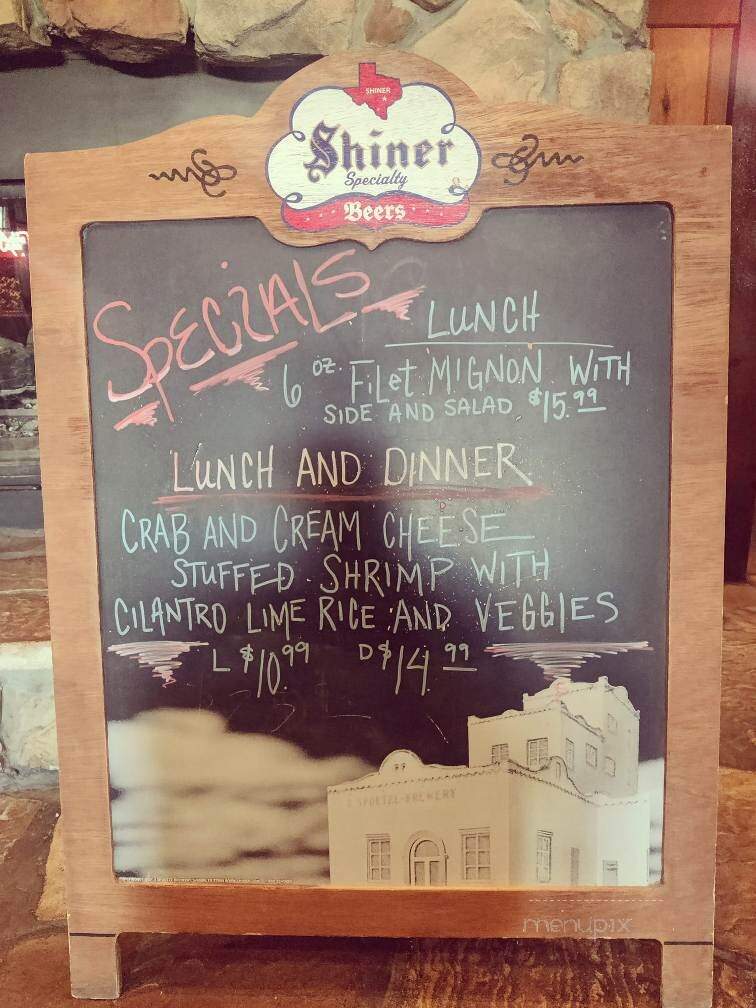 SHINER
Shiner
Specialty
Beers
SPECIALS
LUNCH
6 OZ. FiLet MIGNON WITH
SIDE AND SALAD $15.99
LUNCH AND DINNER
CRAB AND CREAM CHEESE
STUFFED SHRIMP WITH
CILANTRO LIME RICE AND VEGGIES
L $10.99 D $14.99
SPOETZL-BREWERY
menupix